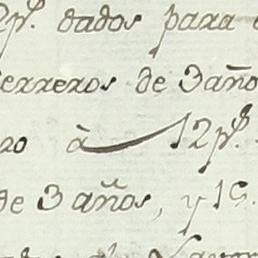 2p.ˢ dados para
erreros de 3 año
ro à 12p.ˢ
de 3 años, y 1